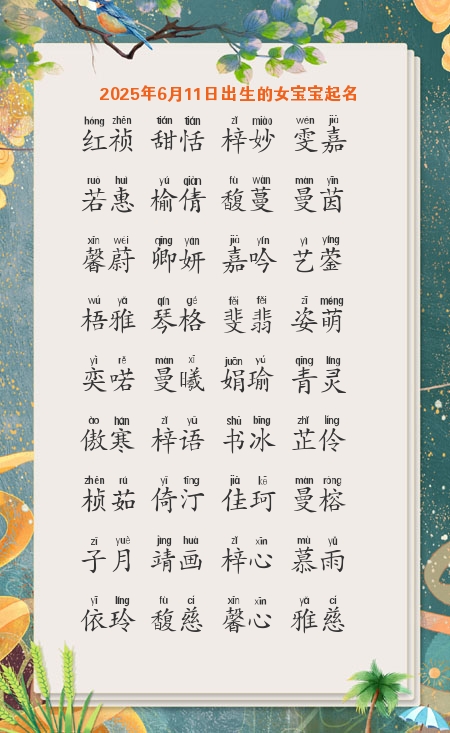 2025年6月11日出生的女宝宝起名
hóng zhēn tián tián zǐ miào wén jiā
红祯 甜恬 梓妙 雯嘉
ruò huì yú qiàn fù wàn màn yīn
若惠 榆倩 馥蔓 曼茵
xīn wèi qīng yán jiā yín yì yíng
馨蔚 卿妍 嘉吟 艺蓥
wú yǎ qín gé fěi fěi zī méng
梧雅 琴格 斐翡 姿萌
yì rě màn xī juān yú qīng líng
奕喏 曼曦 娟瑜 青灵
ào hán zǐ yǔ shū bīng zhǐ líng
傲寒 梓语 书冰 芷伶
zhēn rú yǐ tīng jiā kē màn róng
桢茹 倚汀 佳珂 曼榕
zǐ yuè jìng huà zǐ xīn mù yǔ
子月 靖画 梓心 慕雨
yī líng fù cí xīn xīn yǎ cí
依玲 馥慈 馨心 雅慈